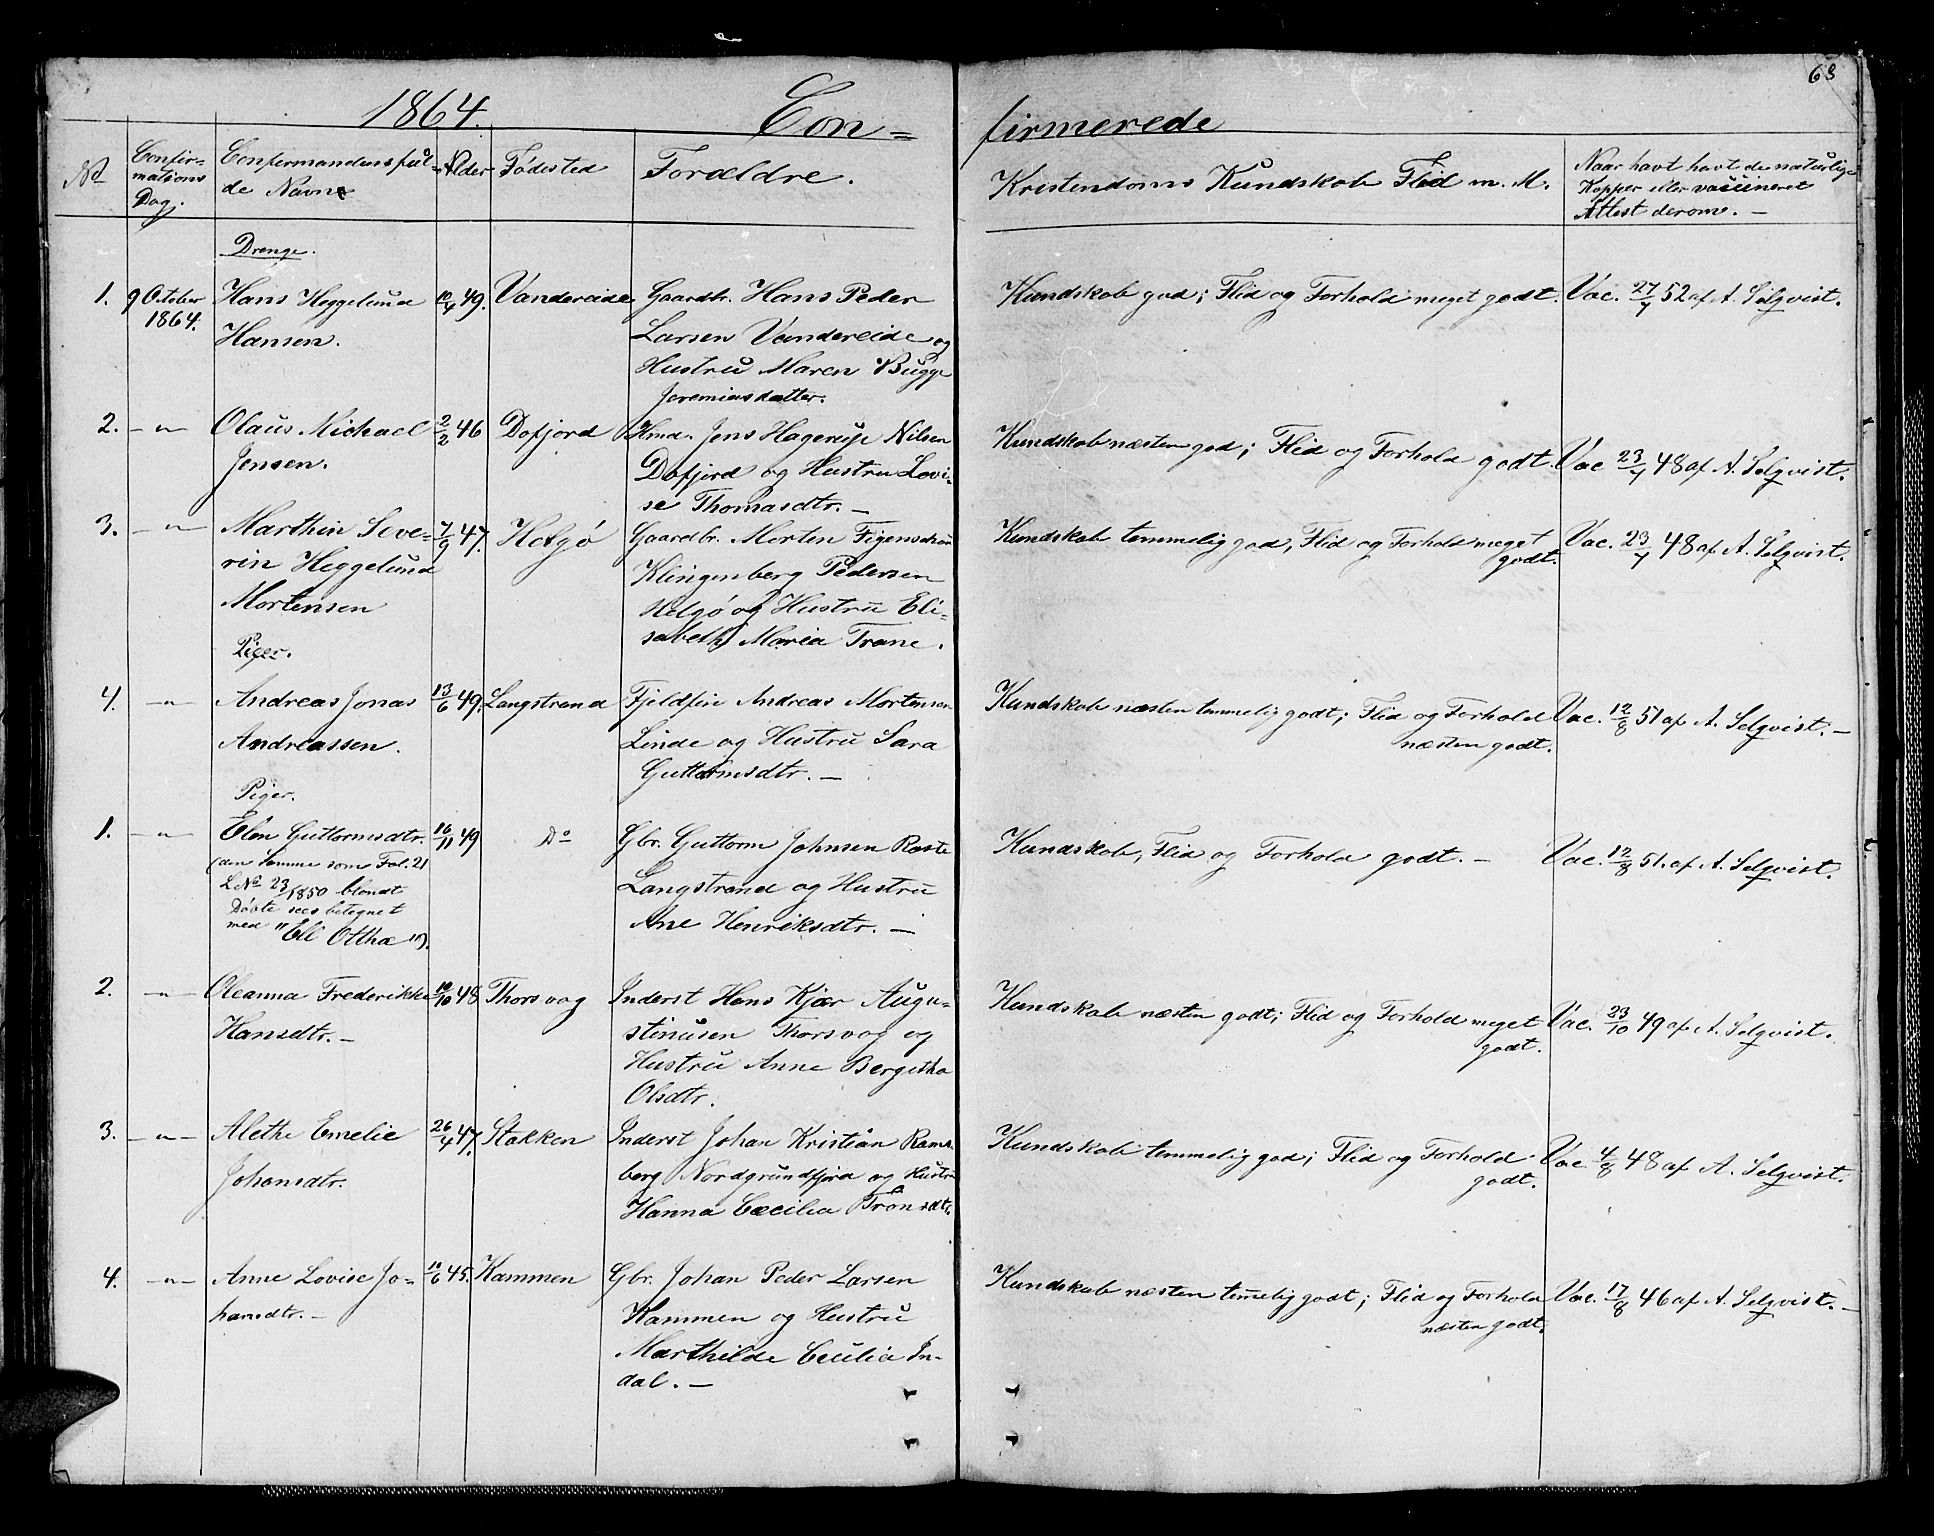 63
1864. Con= firmerede
No
Confir=
mations
Dag.
Confermandens ful=
de Navne
Alder
Fødested
Forældre.
Kristendoms Kundskab Flid m. M.
Naar havt havt de naturlige
Kopper eller vaccineret
Attest derom. —
Drenge.
1. 9 October Hans Heggelund 10/4 49. Vandereide Gaardbr. Hans Peder Kundskab god; Flid og Forhold meget godt. Vac. 27/7 52 af A. Selqvist.
1864. Hansen. Larsen Vandereide og
Hustru Maren Bugge
Jeremiasdatter.
2. —"— Olaus Michael 2/2 46 Dofjord Hmd. Jens Hagerup Nilsen Kundskab næsten god; Flid og Forhold godt. Vac 23/7 48 af A. Selqvist.
Jensen. Dofjord og Hustru Lovi-
se Thomasdtr. —
3. —"— Marthin Seve= 7/9 47. Helgø Gaardbr. Morten Kundskab temmelig god, Flid og Forhold meget Vac. 23/7 48 af A. Selqvist.
godt.
rin Heggelund Klingenberg Pedersen
Mortensen Helgø og Hustru Eli-
sabeth Maria Trane.
Piger.
4. —"— Andreas Jonas 13/6 49. Langstrand Fjeldfin Andreas Mortensen Kundskab næsten temmelig godt; Flid og Forhold Vac. 12/8 51 af A. Selqvist. —
næsten godt.
Andreassen. Linde og Hustru Sara
Guttormsdtr. —
Piger.
1. —"— Elen Guttormsdtr. 16/11 49 Do Gbr. Guttorm Johnsen Raste Kundskab, Flid og Forhold godt. — Vac. 12/8 51. af A. Selqvist.
(den samme som Fol. 21 Langstrand og Hustru
LNo 23/1850 blandt Ane Henriksdtr. —
Døbte sees betegnet
med "Ell Otthæ").
2. —"— Oleanna Frederikke 10/10 48 Thorsvag Inderst Hans Kjær Augu= Kundskab næsten godt; Flid og Forhold meget Vac. 23/10 49 af A. Selqvist.
godt.
Hansdtr. — stinusen Thorsvag og
Hustru Anne Bergitha
Olsdtr.
3. —"— Alethe Emelie 26/4 47. Stakken Inderst Johan Kristian Rams- Kundskab temmelig god; Flid og Forhold Vac. 4/8 48 af A. Selqvist.
godt.
Johansdtr. berg Nordgrundfjord og Hustru
Hanna Cæcilia Tronsdtr.
4. —"— Anne Lovise Jo= 10/6 45. Kammen Gbr. Johan Peder Larsen Kundskab næsten temelig godt; Flid og Forhold Vac. 17/8 46 af A. Selqvist. —
næsten godt.
hansdtr. — Kammen og Hustru
Marthilde Cecilia In-
dal. —